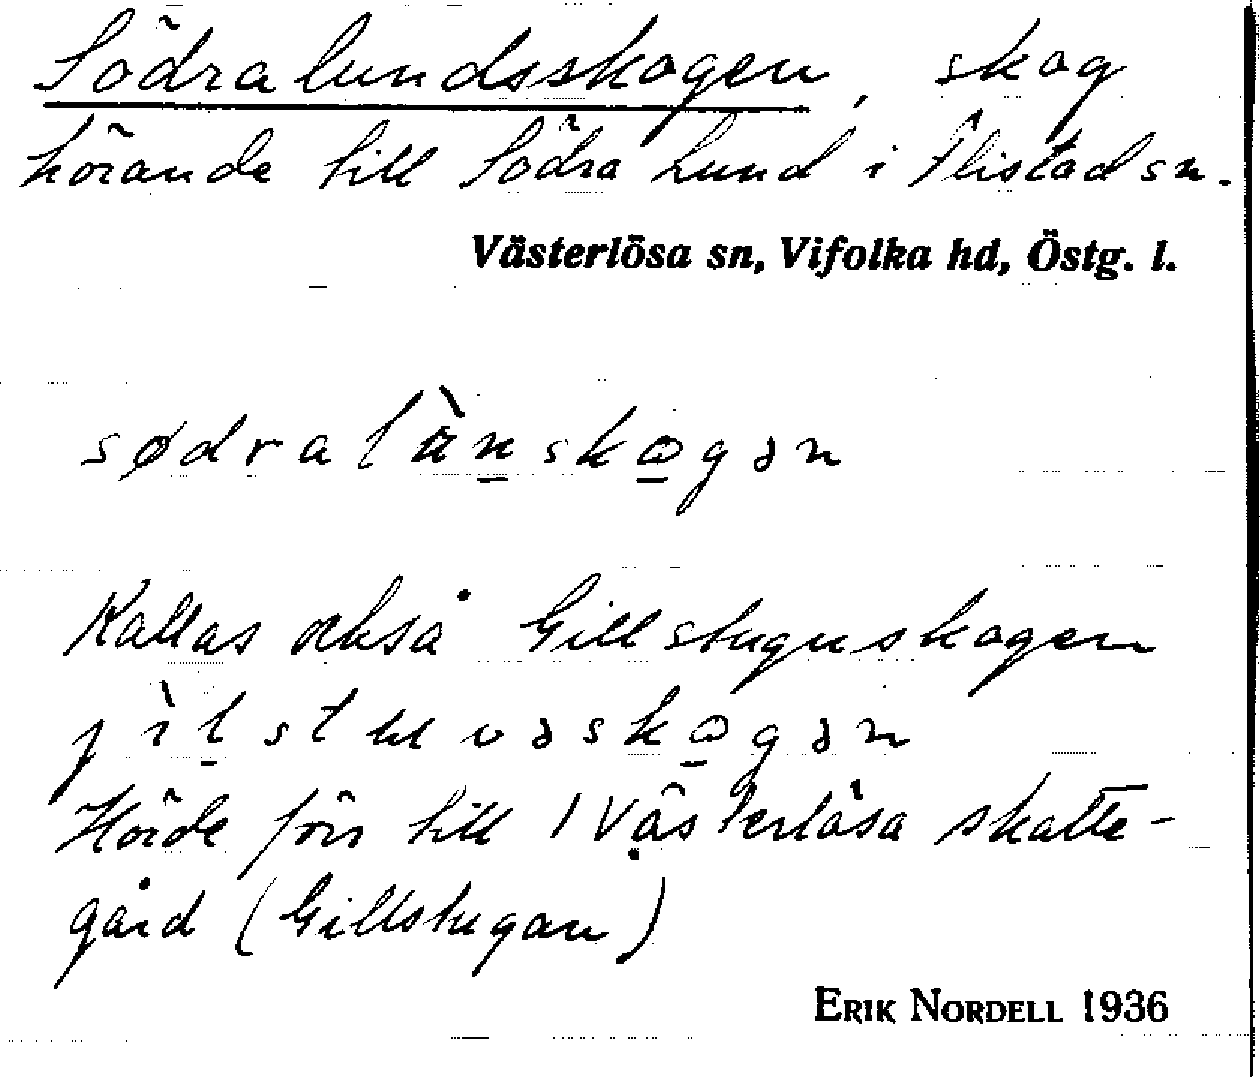 Södralundsskogen, skog
hörande till Södra Lund i Flistad sn.
Västerlösa sn, Vifolka hd, Östg. l.
sødralùnskogən
Kallas också Gillstuguskogen
jìlstuvəskogən
Hörde förr till 1 Västerlösa skatte-
gård (Gillstugan)
ERIK NORDELL 1936